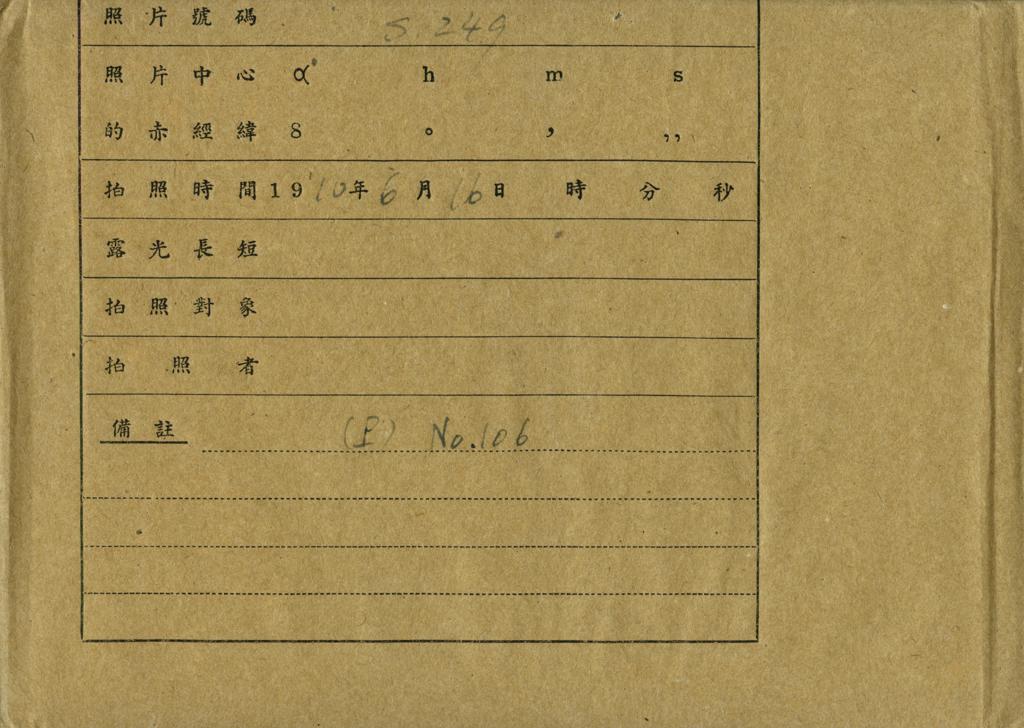 照片號碼 S. 249
照片中心 α h m s
的赤經緯 δ ° ′ ″
拍照時間 1910年6月16日 時 分 秒
露光長短
拍照對象
拍照者
備註 (P) No.106